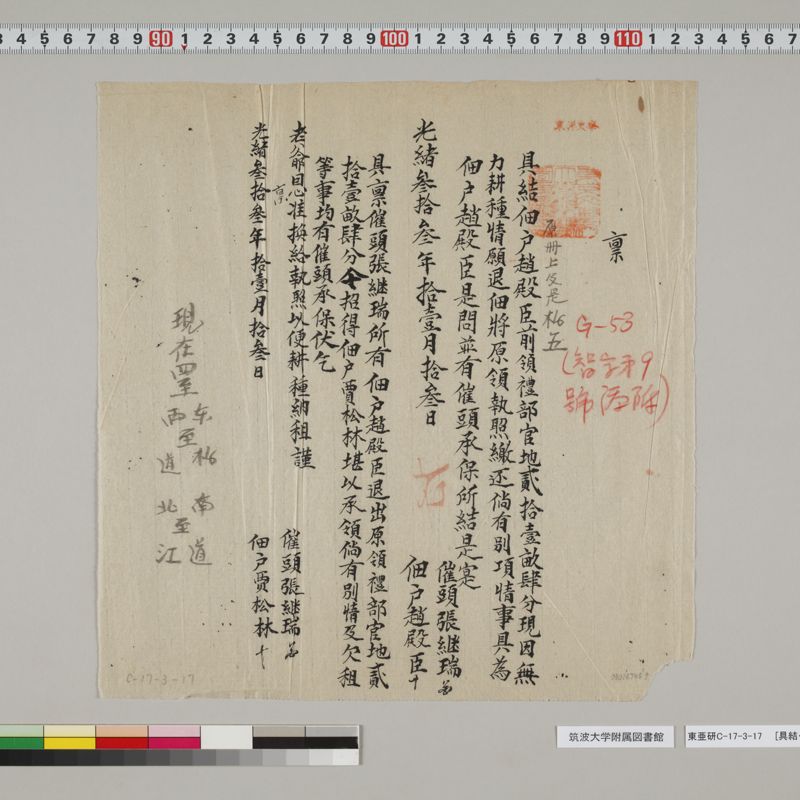 3 4 5 6 7 8 9 90 1 2 3 4 5 6 7 8 9 100 1 2 3 4 5 6 7 8 9 110 1 2 3 4 5 6 7
稟
具結佃户趙殿臣前領禮部官地貳拾壹畝肆分現因無
力耕種情願退佃將原領執照繳还倘有别項情事具為
佃户趙殿臣是問並有催頭承保所結是寔
催頭張継瑞
佃户趙殿臣十
光緒叁拾叁年拾壹月拾叁日
具稟催頭張継瑞所有佃户趙殿臣退出原領禮部官地貳
拾壹畝肆分今招得佃户賈松林堪以承領倘有别情及欠租
等事均有催頭承保伏乞
老爺恩准換給執照以便耕種納租謹
稟
催頭張継瑞
佃户賈松林十
光緒叁拾叁年拾壹月拾叁日
G-53
現在四至
东
南至道
西至道
北至江
C-17-3-17
筑波大学附属図書館
東亜研C-17-3-17 [具結